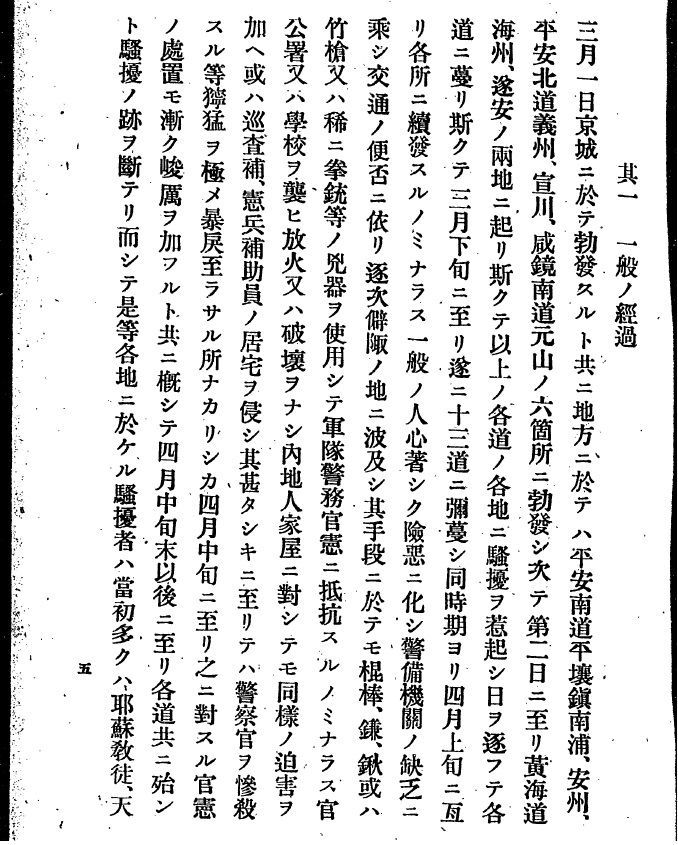 其一　一般ノ經過
三月一日京城ニ於テ勃發スルト共ニ地方ニ於テハ平安南道平壤鎭南浦、安州、
平安北道義州、宣川、咸鏡南道元山ノ六箇所ニ勃發シ次テ第二日ニ至リ黃海道
海州、遂安ノ兩地ニ起リ斯クテ以上ノ各道ノ各地ニ騷擾ヲ惹起シ日ヲ逐フテ各
道ニ蔓リ斯クテ三月下旬ニ至リ遂ニ十三道ニ彌蔓シ同時期ヨリ四月上旬ニ亙
リ各所ニ續發スルノミナラス一般ノ人心著シク險惡ニ化シ警備機關ノ缺乏ニ
乘シ交通ノ便否ニ依リ逐次僻陬ノ地ニ波及シ其手段ニ於テモ棍棒、鎌、鍬或ハ
竹槍又ハ稀ニ拳銃等ノ兇器ヲ使用シテ軍隊警務官憲ニ抵抗スルノミナラス官
公署又ハ學校ヲ襲ヒ放火又ハ破壞ヲナシ內地人家屋ニ對シテモ同樣ノ迫害ヲ
加ヘ或ハ巡査補、憲兵補助員ノ居宅ヲ侵シ其甚タシキニ至リテハ警察官ヲ慘殺
スル等獰猛ヲ極メ暴戾至ラサル所ナカリシカ四月中旬ニ至リ之ニ對スル官憲
ノ處置モ漸ク峻厲ヲ加フルト共ニ概シテ四月中旬末以後ニ至リ各道共ニ殆ン
ト騷擾ノ跡ヲ斷テリ而シテ是等各地ニ於ケル騷擾者ハ當初多クハ耶蘇敎徒、天
五